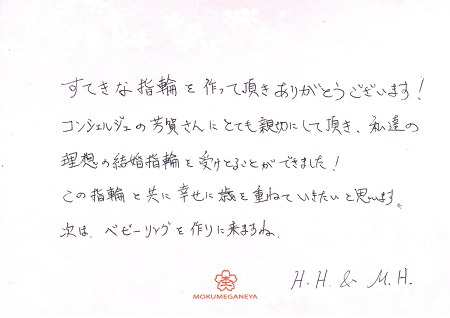 すてきな指輪を作って頂きありがとうございます！
コンシェルジュの芳賀さんにとても親切にして頂き、私達の
理想の結婚指輪を受けとることができました！
この指輪と共に幸せに歳を重ねていきたいと思います。
次は、ベビーリングを作りに来ますね。
H.H. & M.H.
MOKUMEGANEYA